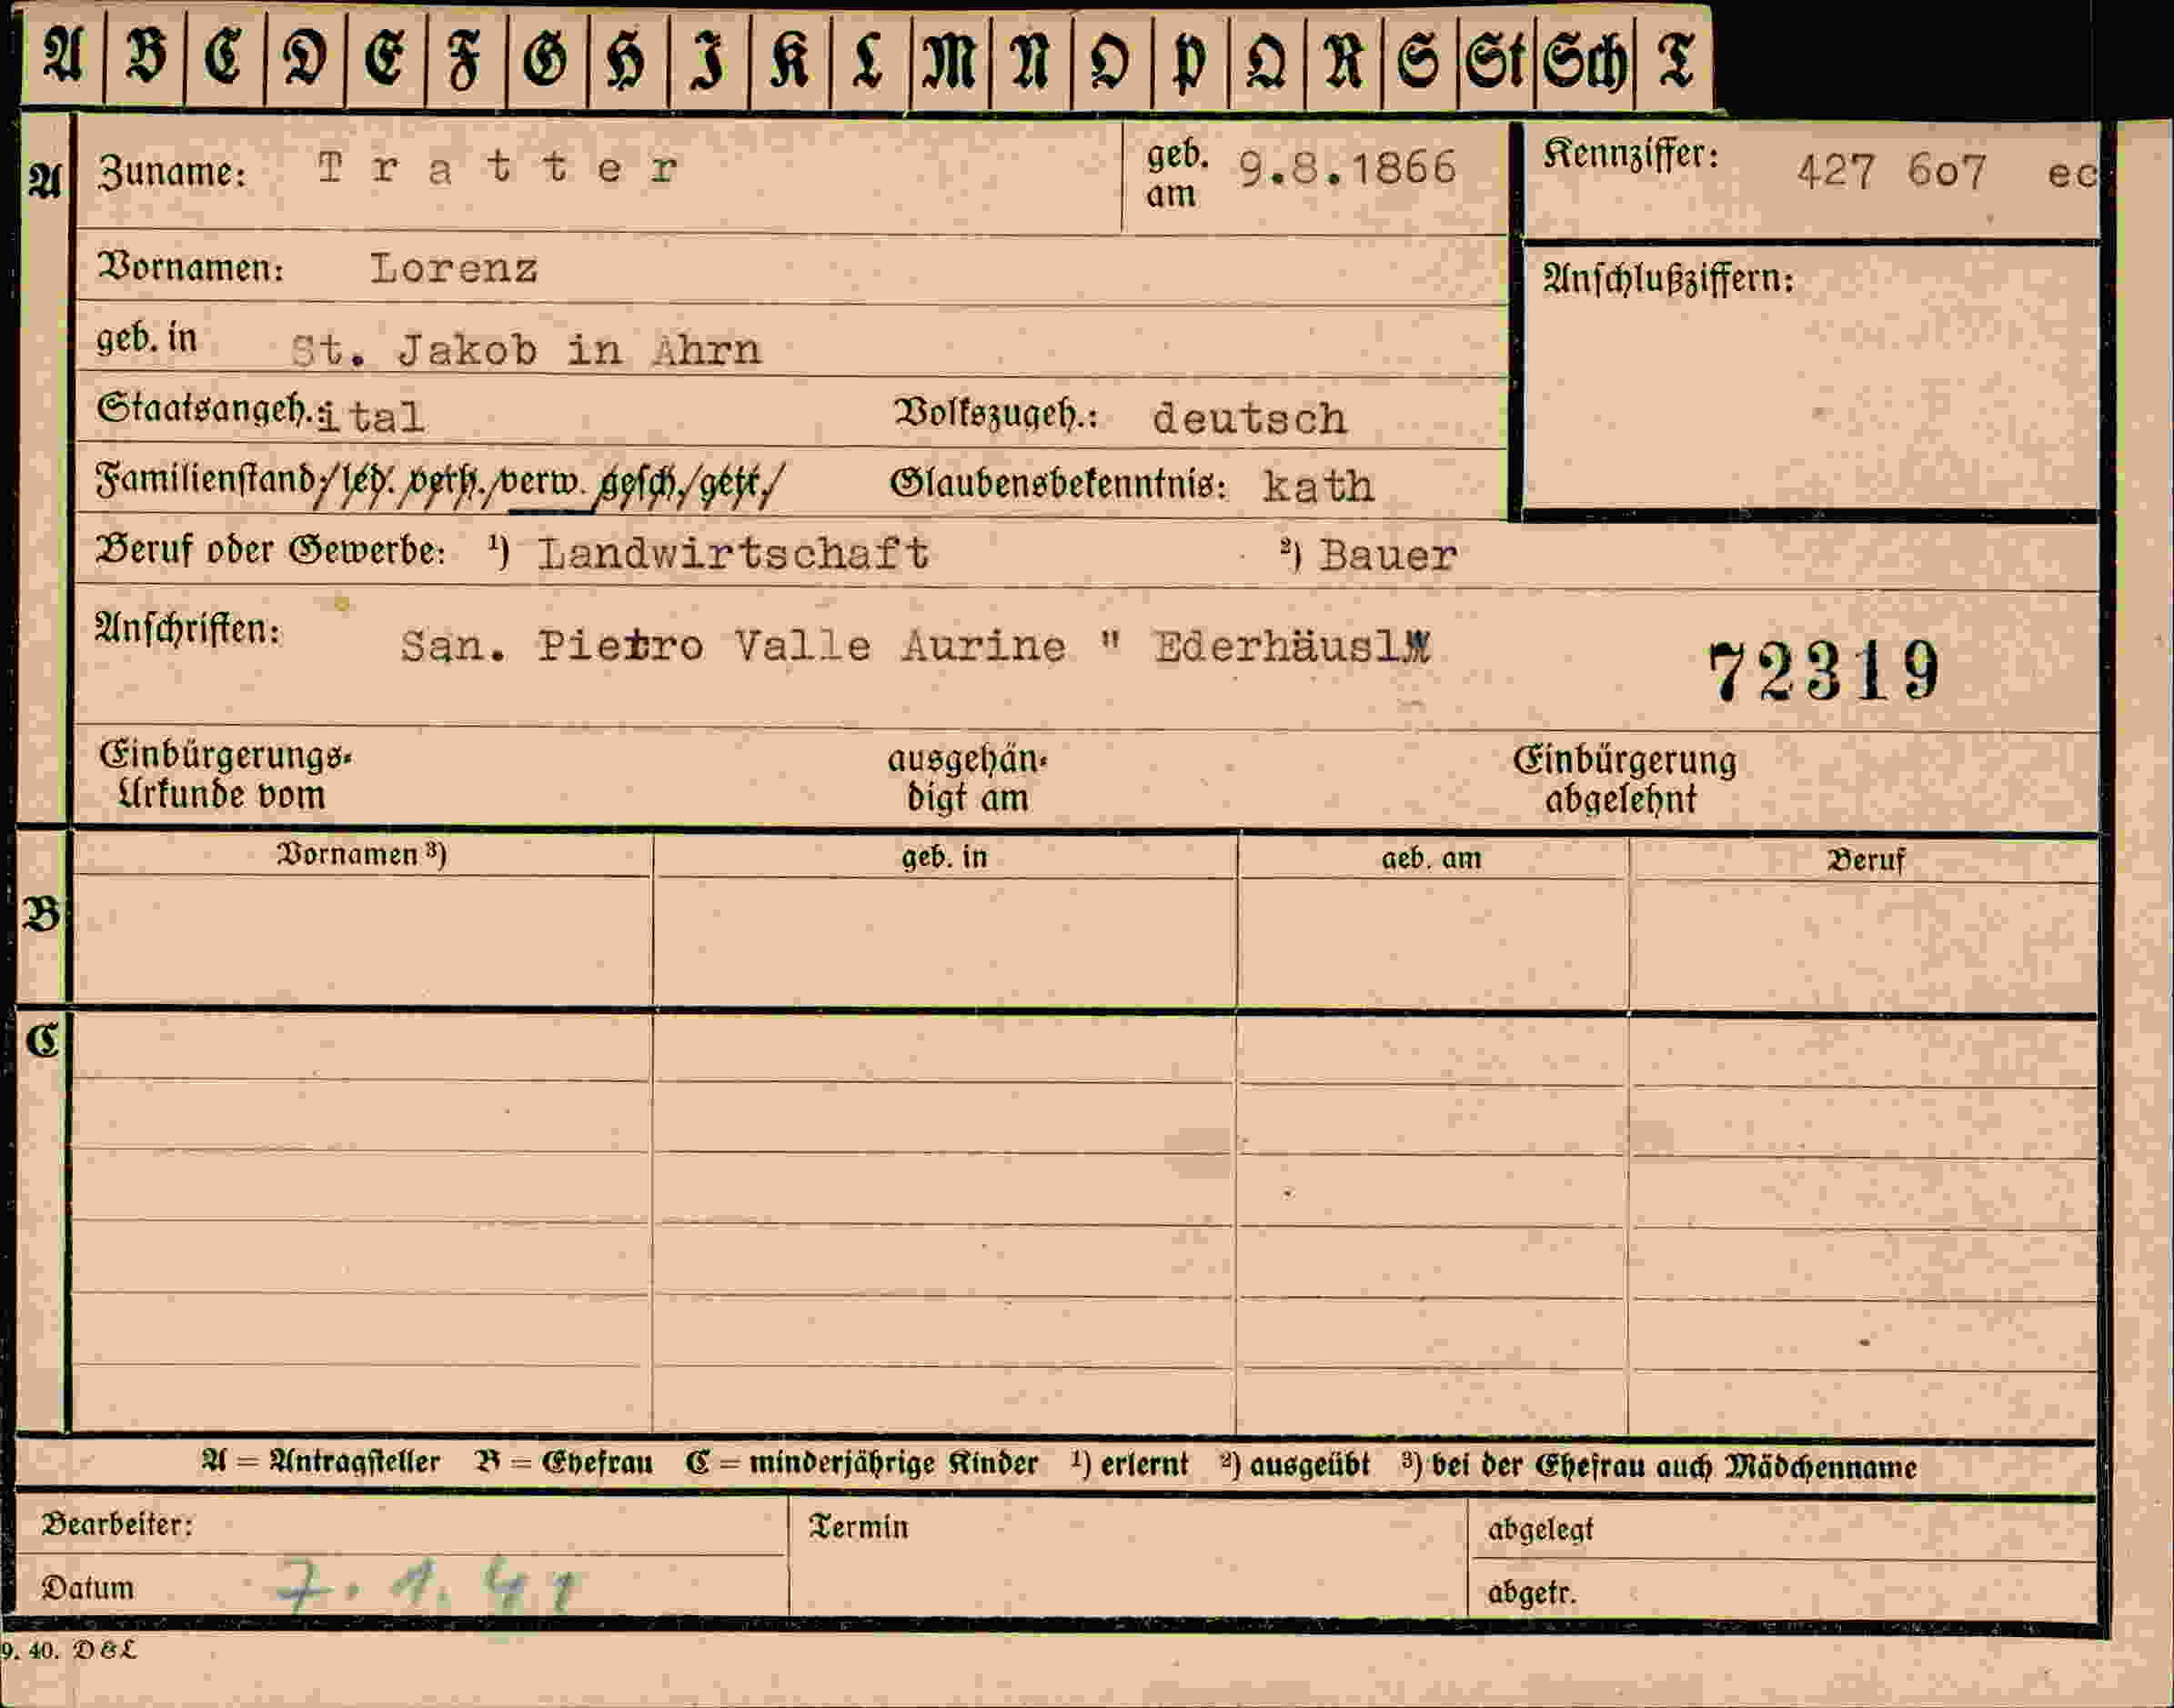 A B C D E F G H I K L M N O P Q R S St Sch T
A Zuname: Tratter geb. am 9.8.1866 Kennziffer: 427 607 ec
Vornamen: Lorenz Anschlußziffern:
geb. in St. Jakob in Ahrn
Staatsangeh.: ital Volkszugeh.: deutsch
Familienstand: led. verh. verw. gesch. getr. Glaubensbekenntnis: kath
Beruf oder Gewerbe: ¹) Landwirtschaft ²) Bauer
Anschriften: San. Pietro Valle Aurine " Ederhäusl" 72319
Einbürgerungs- ausgehän- Einbürgerung
Urkunde vom digt am abgelehnt
Vornamen ³) geb. in geb. am Beruf
B
C
A = Antragsteller B = Ehefrau C = minderjährige Kinder ¹) erlernt ²) ausgeübt ³) bei der Ehefrau auch Mädchenname
Bearbeiter: Termin abgelegt
Datum 7.1.41 abgetr.
9. 40. D&L